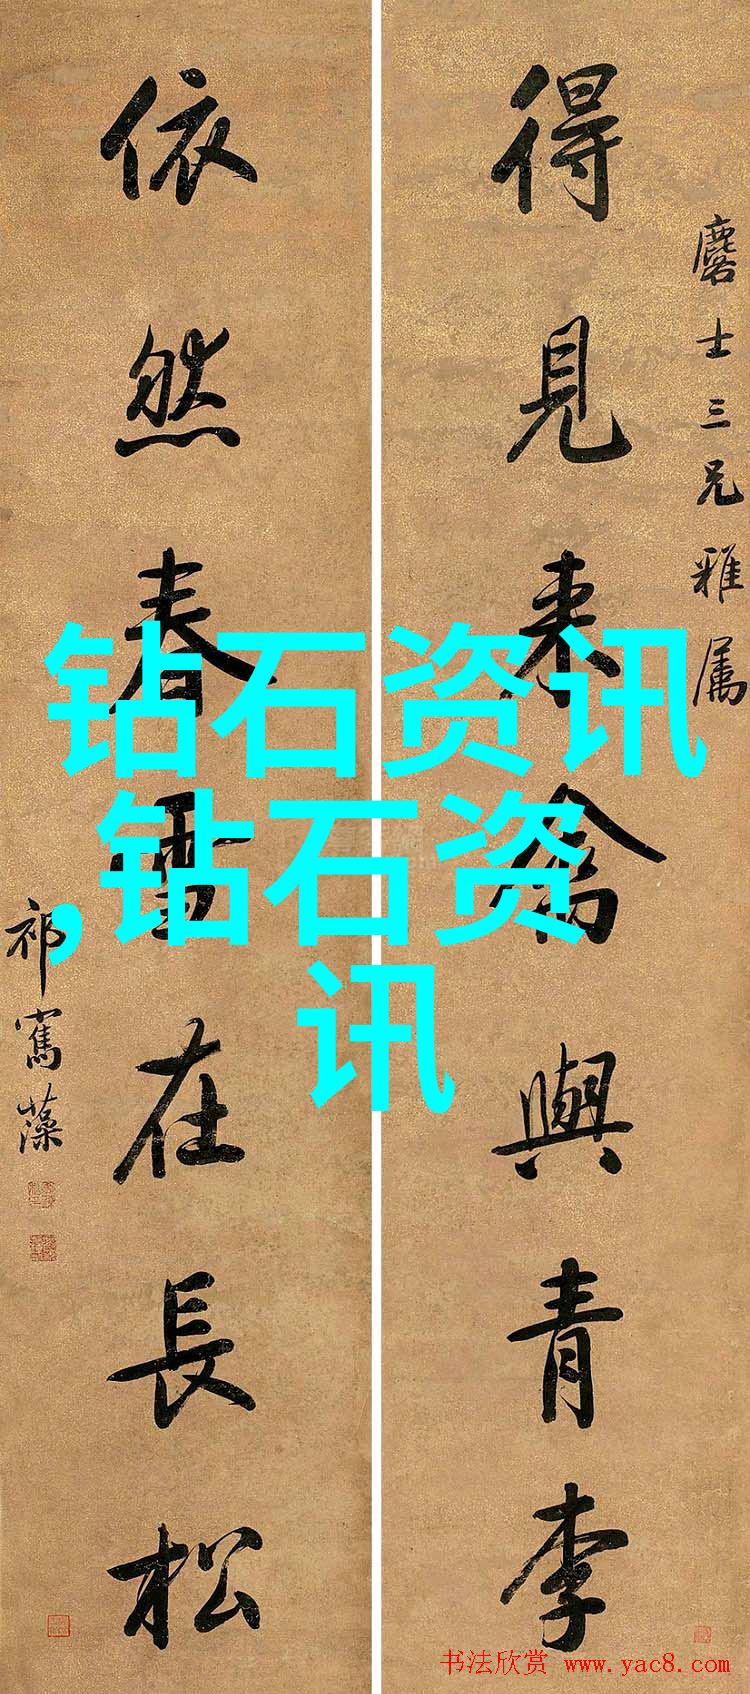 得見來禽與青李
麐士三兄雅属
依然春雪在長松
祁寯藻
钻石资讯
,钻石资
讯
书法欣赏 www.yac8.com